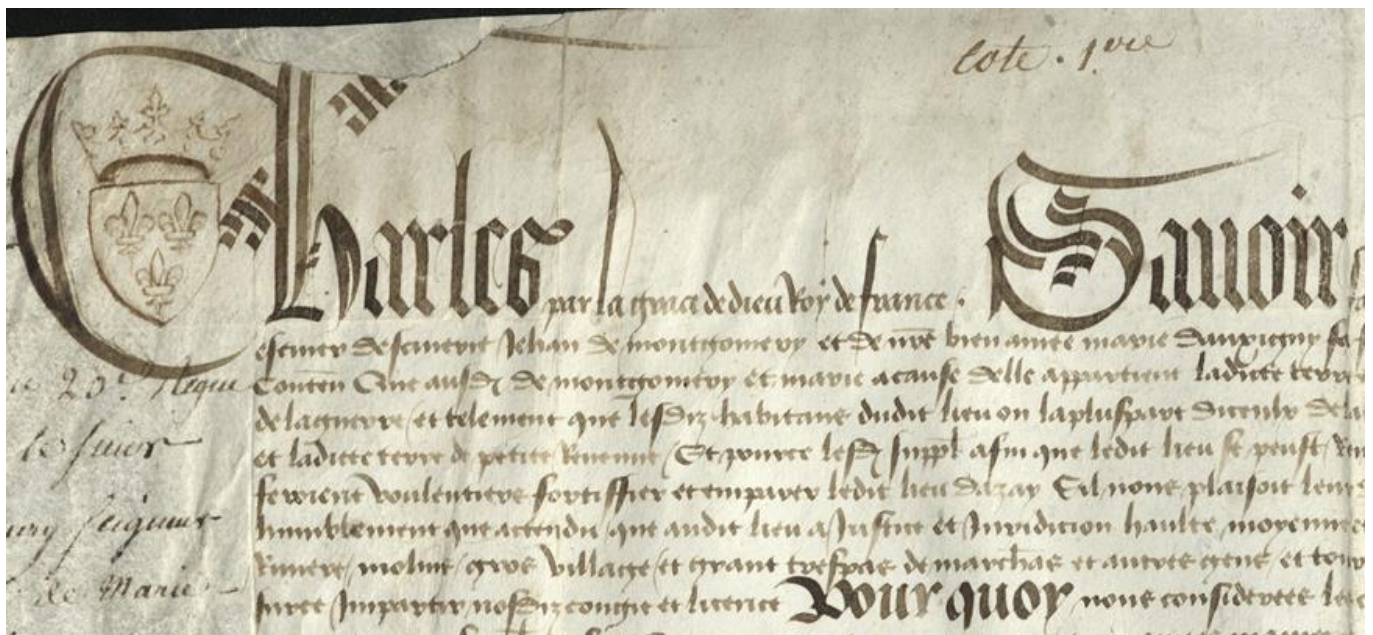 cote . 1.ere
Charles par la grace de dieu Roy de france . Savoir
escuier descuierie Jehan de montgomery et de nre bien amee marie
contenu Que ausd de montgomery et marie a cause delle appartient ladicte terre
de la guerre / et telement que lesdiz habitans dudit lieu ou la pluspart diceulx
et ladicte terre de petite Revenue / Et pource lesd suppl afin que ledit lieu se peust
feroient voulentiers fortiffier et emparer ledit lieu dazay Sil nous plaisoit leur
humblement que actendu que audit lieu a Justice et Juridicion haulte moyenne
Riviere / molins gros village / et grant trespas de marchãs et autres gens et
Impartir nosdiz congie et licence Pour quoy nous considerees
le 23.e
le sieur
seigneur
de Marie